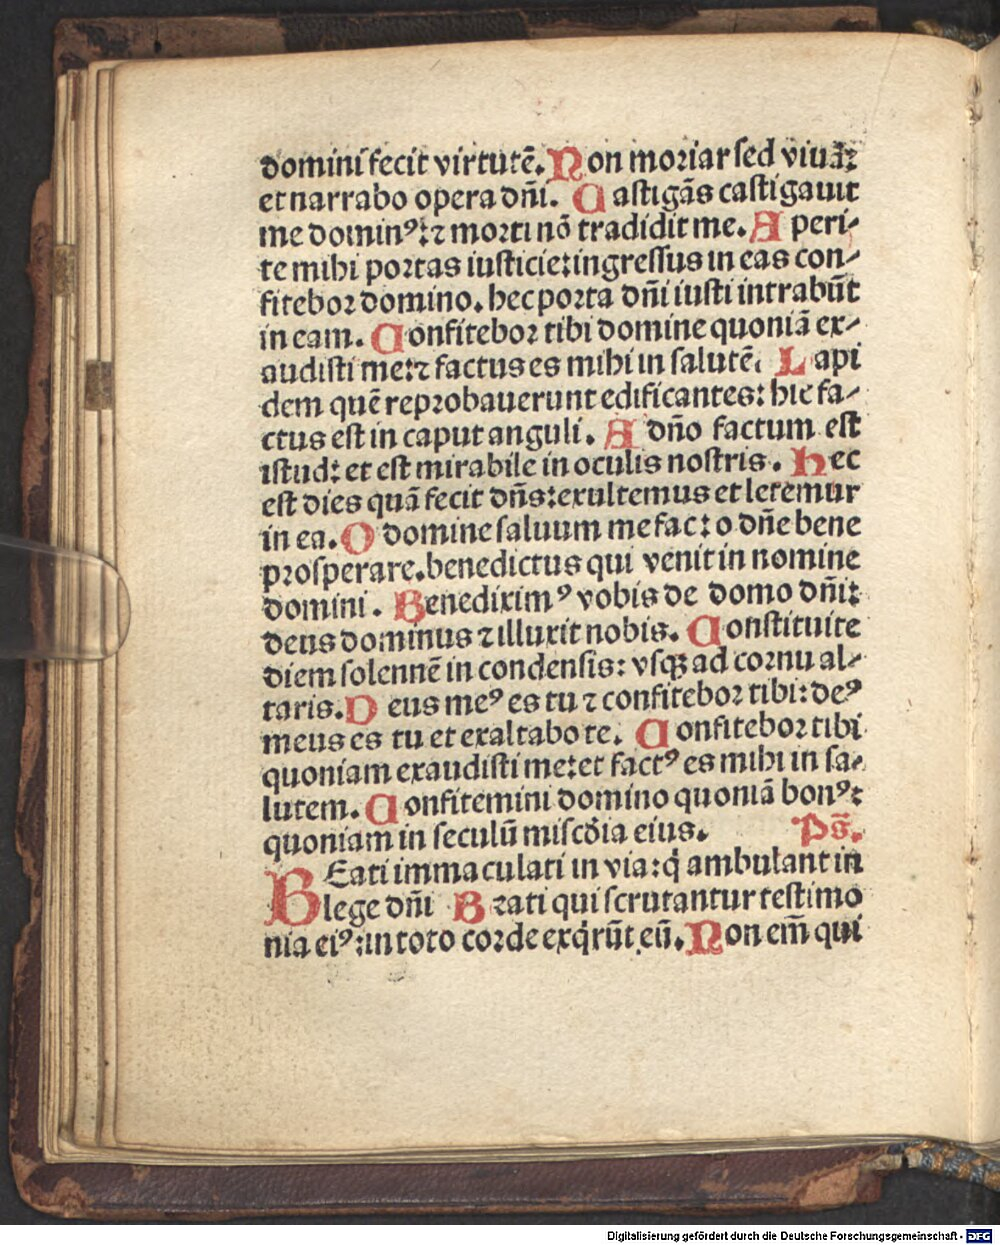 domini fecit virtutē. Non moriar sed viuā:
et narrabo opera dñi. Castigās castigauit
me dominꝰ: ⁊ morti nō tradidit me. Aperi-
te mihi portas iusticie: ingressus in eas con-
fitebor domino. hec porta dñi iusti intrabūt
in eam. Confitebor tibi domine quoniā ex-
audisti me: ⁊ factus es mihi in salutē. Lapi
dem quē reprobauerunt edificantes: hic fa-
ctus est in caput anguli. A dño factum est
istud: et est mirabile in oculis nostris. Hec
est dies quā fecit dñs: exultemus et letemur
in ea. O domine saluum me fac: o dñe bene
prosperare. benedictus qui venit in nomine
domini. Benediximꝰ vobis de domo dñi:
deus dominus ⁊ illuxit nobis. Constituite
diem solennē in condensis: vsqꝫ ad cornu al-
taris. Deus meꝰ es tu ⁊ confitebor tibi: deꝰ
meus es tu et exaltabo te. Confitebor tibi
quoniam exaudisti me: et factꝰ es mihi in sa-
lutem. Confitemini domino quoniā bonꝰ:
quoniam in seculū miscdia eius. Ps.
BEati immaculati in via: q̇ ambulant in
lege dñi Beati qui scrutantur testimo
nia eiꝰ: in toto corde exq̇rūt eū. Non em̄ qui
Digitalisierung gefördert durch die Deutsche Forschungsgemeinschaft - DFG